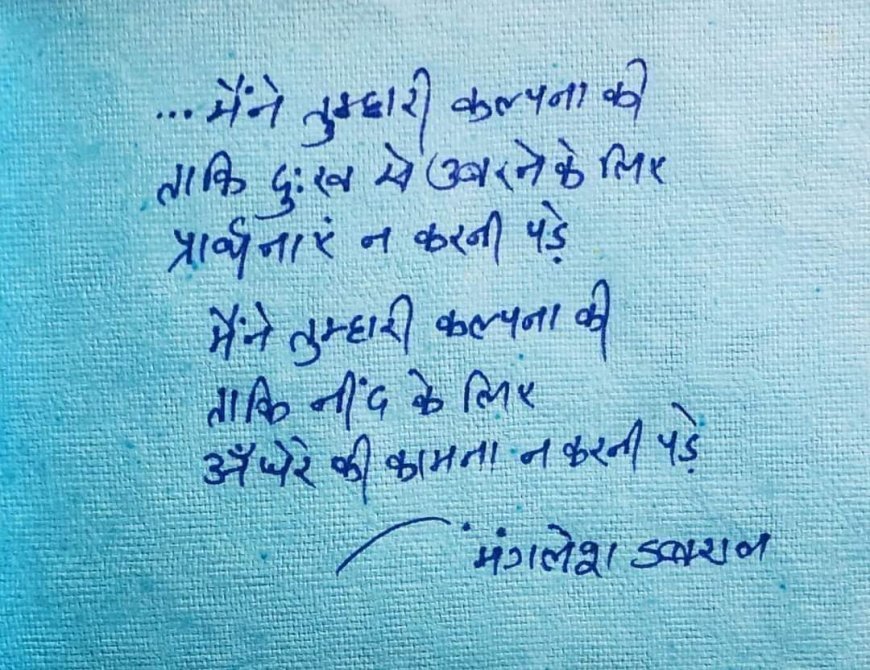 ...मैंने तुम्हारी कल्पना की
ताकि दुःख से उबरने के लिए
प्रार्थनाएं न करनी पड़े
मैंने तुम्हारी कल्पना की
ताकि नींद के लिए
अँधेरे की कामना न करनी पड़े
मंगलेश डबराल